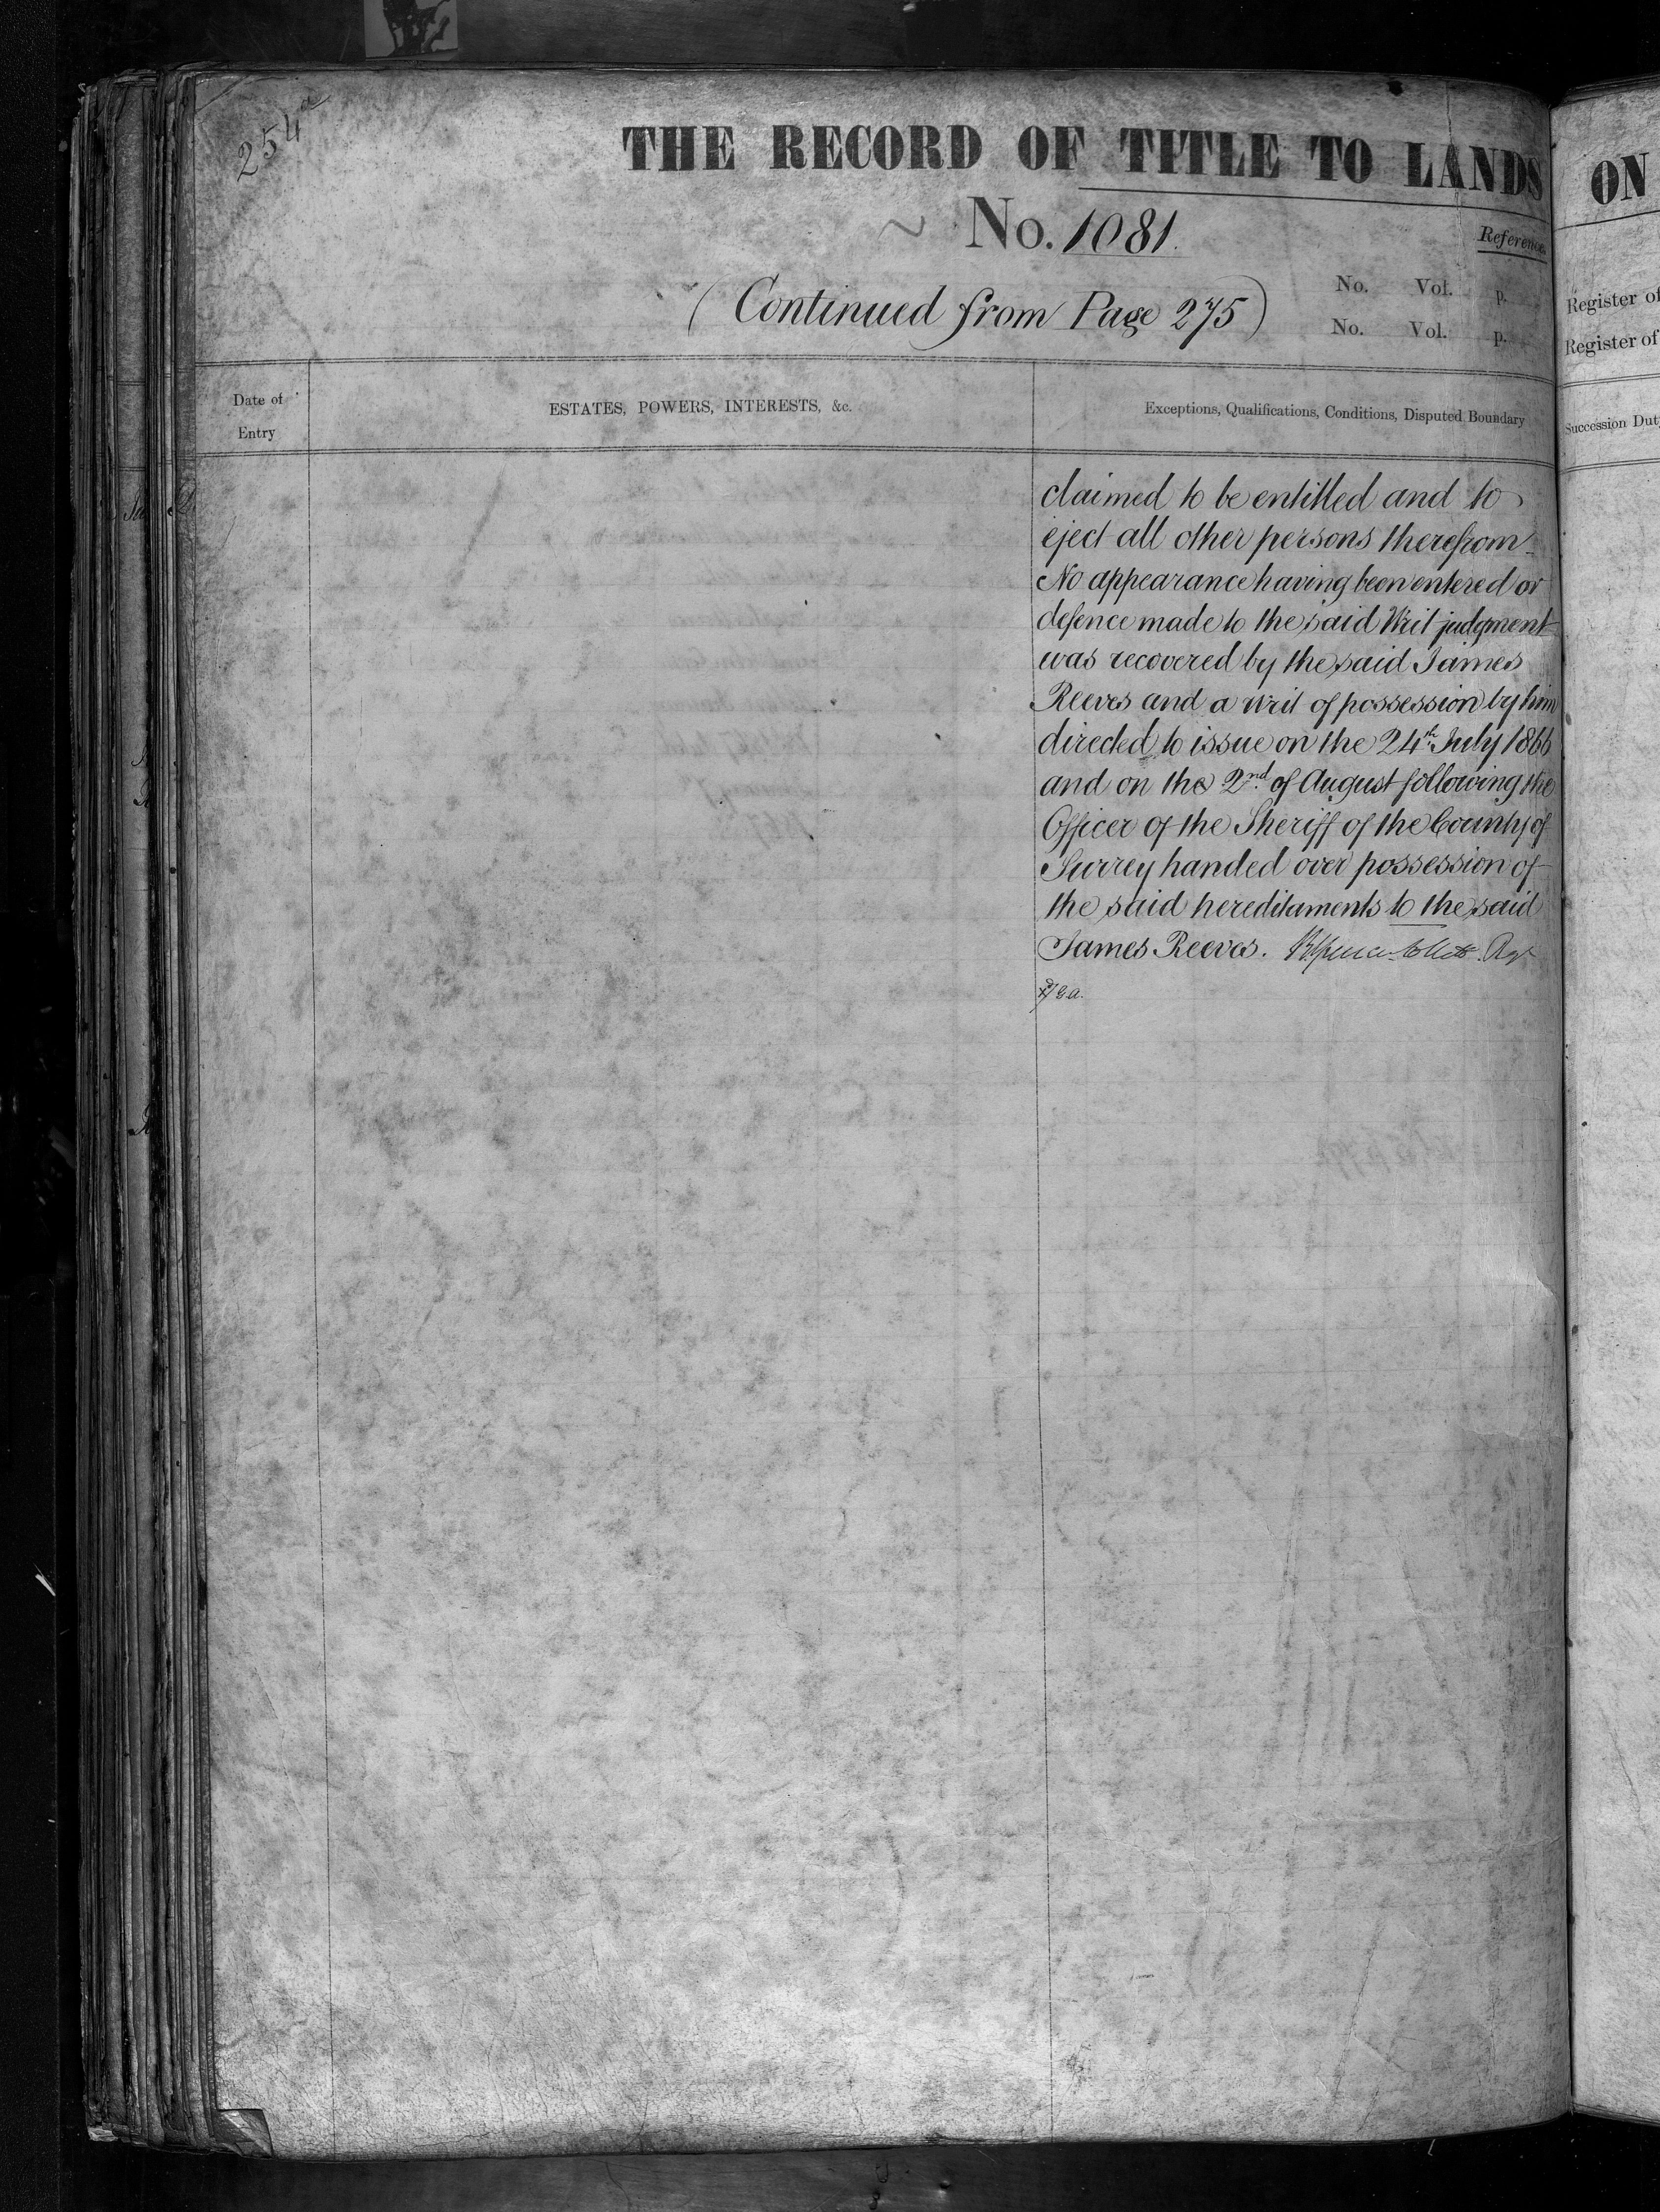 254a
THE RECORD OF TITLE TO LANDS
ON
No. 1081.
Reference.
(Continued from Page 275)
No. Vol. p.
No. Vol. p.
Register of
Register of
Date of
Entry
ESTATES, POWERS, INTERESTS, &c.
Exceptions, Qualifications, Conditions, Disputed Boundary
Succession Duty
claimed to be entitled and to
eject all other persons therefrom
No appearance having been entered or
defence made to the said Writ judgment
was recovered by the said James
Reeves and a writ of possession by him
directed to issue on the 24th July 1866
and on the 2nd of August following the
Officer of the Sheriff of the County of
Surrey handed over possession of
the said hereditaments to the said
James Reeves.
G.A.